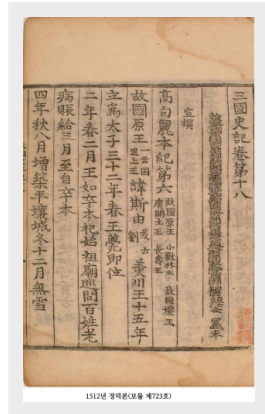 三國史記卷第十八
宣撰
高句麗本紀第六 故國原王 小獸林王 故國壤王
廣開土王 長壽王
故國原王 一云國罡上王 諱斯由 或云釗 美川王十五年
立爲太子三十二年春王薨即位
二年春二月王如卒本祀始祖廟巡問百姓老
病賑給三月至自卒本
四年秋八月增築平壤城冬十二月無雪
1512년 정덕본(보물 제723호)